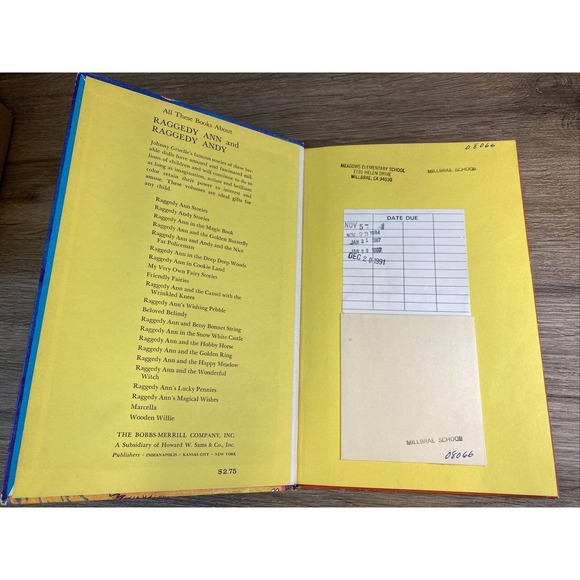 All These Books About
RAGGEDY ANN and
RAGGEDY ANDY
Johnny Gruelle's famous stories of these lov-
able dolls have amused and fascinated mil-
lions of children and will continue to do so
as long as imagination, action and brilliant
color retain their power to interest and
amuse. These volumes are ideal gifts for
any child.
Raggedy Ann Stories
Raggedy Andy Stories
Raggedy Ann in the Magic Book
Raggedy Ann and the Golden Butterfly
Raggedy Ann and Andy and the Nice
Fat Policeman
Raggedy Ann in the Deep Deep Woods
Raggedy Ann in Cookie Land
My Very Own Fairy Stories
Friendly Fairies
Raggedy Ann and the Camel with the
Wrinkled Knees
Raggedy Ann's Wishing Pebble
Beloved Belindy
Raggedy Ann and Betsy Bonnet String
Raggedy Ann in the Snow White Castle
Raggedy Ann and the Hobby Horse
Raggedy Ann and the Golden Ring
Raggedy Ann and the Happy Meadow
Raggedy Ann and the Wonderful
Witch
Raggedy Ann's Lucky Pennies
Raggedy Ann's Magical Wishes
Marcella
Wooden Willie
THE BOBBS-MERRILL COMPANY, INC.
A Subsidiary of Howard W. Sams & Co., Inc.
Publishers · INDIANAPOLIS · KANSAS CITY · NEW YORK
$2.75
08066
MEADOWS ELEMENTARY SCHOOL
1101 HELEN DRIVE
MILLBRAE, CA 94030
MILLBRAE SCHOOL
DATE DUE
NOV 5
NOV 23 1984
JAN 21 1987
JAN
DEC 20 1991
MILLBRAE SCHOOL
08066